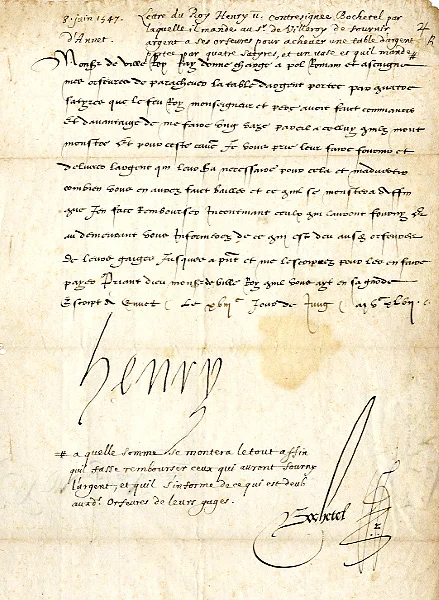 8. juin 1547. Letre du Roy Henry II. contresignée Bochetel par
laquelle il mande au Sr. de Villeroy de fournir
d'Annet. argent a ses orfevres pour achever une table d'argent
portée par quatre satyres, et un vase et qu'il mande #
Monsr de Ville Roy Jay donne charge a pol Romain et ascaigne
mes orfevres de parachever la table dargent portee par quatre
satyres que le feu Roy monseigneur et pere avoit faict commancer
Et davantaige de me faire ung vaze pareil a celluy quilz mont
monstre Et pour ceste cause Je vous prie leur faire fournir et
delivrer largent qui leur sera necessaire pour cela et
combien vous en aurez faict bailler et ce quil se monstera Affin
que Jen face Rembourser Incontinant ceulx qui lauront fourny Et
au demeurant vous Informerez de ce qui est deu ausd orfevres
de leurs gaiges Jusques a pnt et me lescriprez pour les en faire
payer Priant dieu monsr de Ville Roy quil vous ayt en sa garde
Escript de Le Jour de Juing
Henry
# a quelle somme se montera le tout affin
qu'il fasse rembourser ceux qui auront fourny
l'argent, et qu'il s'informe de ce qui est deub
auxd. Orfevres de leurs gages.
Bochetel